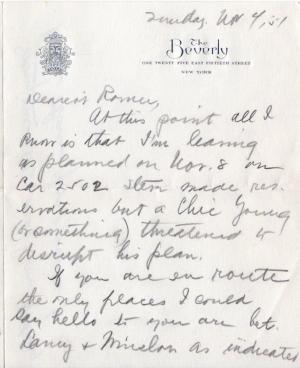 Sunday, Nov 4, 51
The
Beverly
ONE TWENTY FIVE EAST FIFTIETH STREET
NEW YORK
Dearest Romer,
At this point all I
know is that I'm leaving
as planned on Nov. 8 on
Car 2502 made res-
ervations but a Chic Young
(or something) threatened to
disrupt his plan.
If you are en route
the only places I could
say hello to you are bet.
& Winslow as indicated